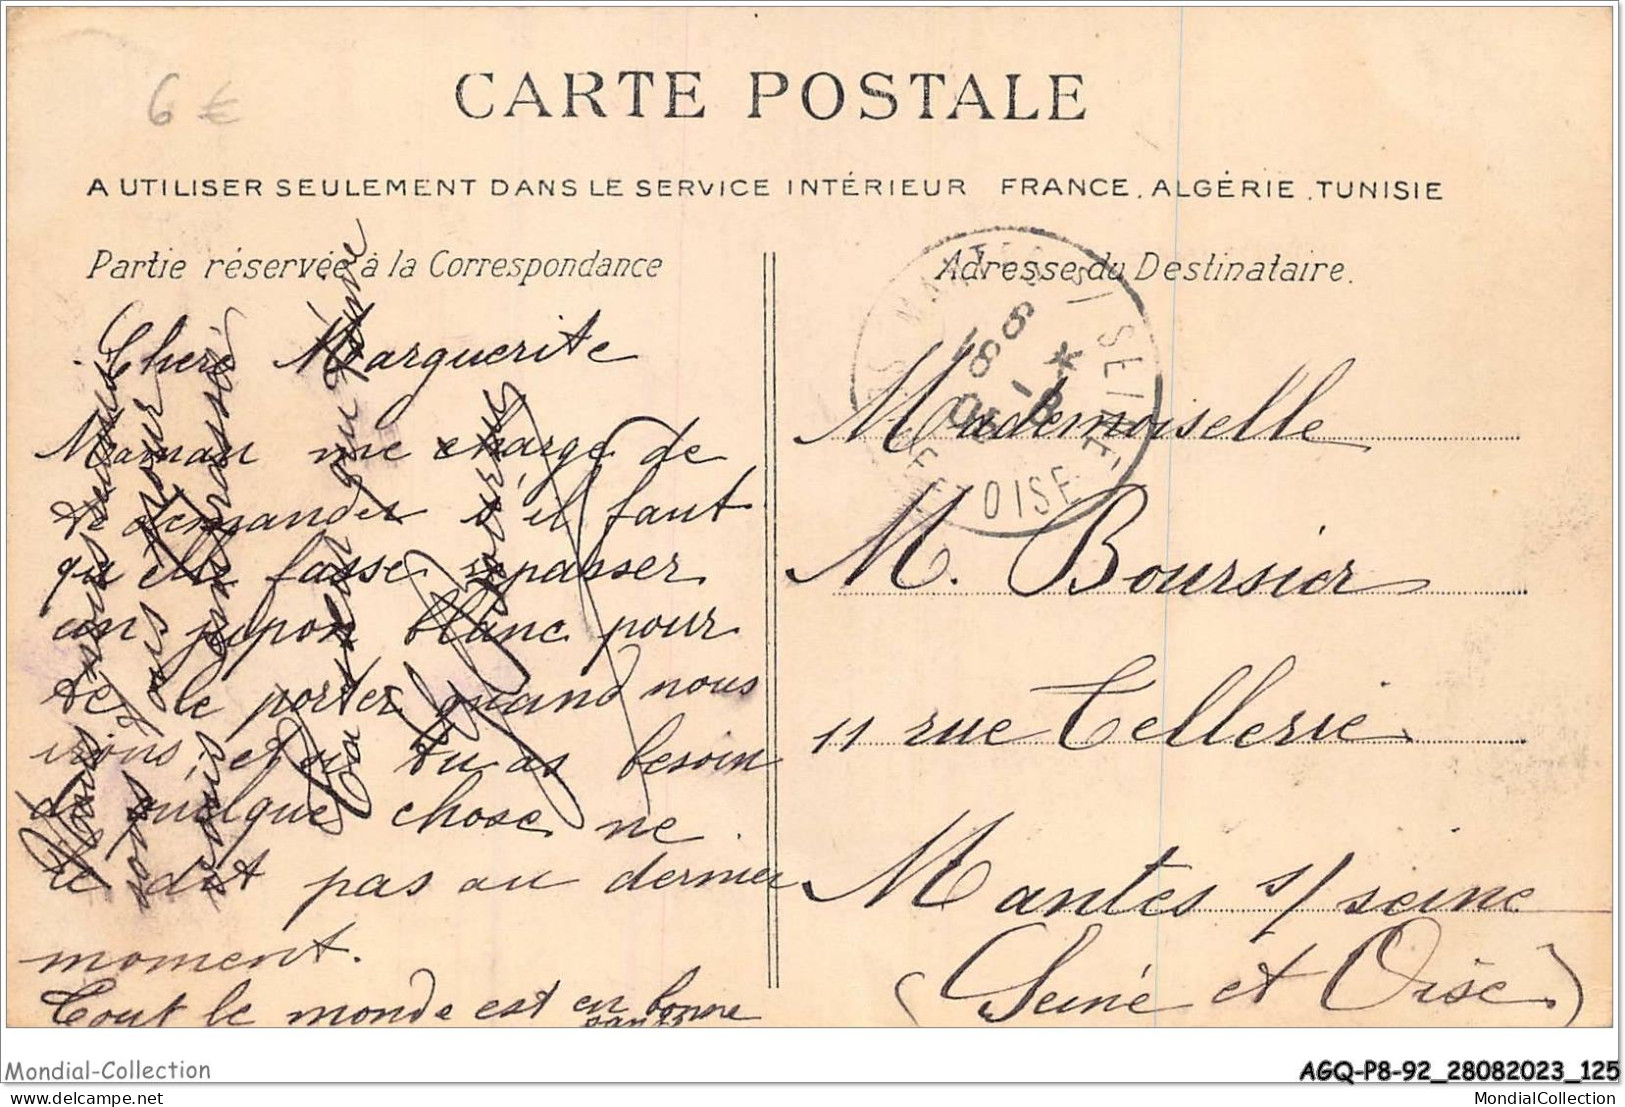 6 €
CARTE POSTALE
A UTILISER SEULEMENT DANS LE SERVICE INTÉRIEUR FRANCE, ALGÉRIE, TUNISIE
Partie réservée à la Correspondance
Chère Marguerite
Maman me charge de
te demander s'il faut
qu'elle fasse repasser
un jupon blanc pour
te le porter quand nous
irons, et si tu as besoin
de quelque chose ne
le dit pas au dernier
moment.
Tout le monde est en bonne
santé
Nous
sous
Ta
Adresse du Destinataire.
SEINE ET OISE
Mademoiselle
M. Boursier
11 rue Tellerie
Mantes s/ seine
(Seine et Oise)
Mondial-Collection
AGQ-P8-92_28082023_125
delcampe.net
MondialCollection